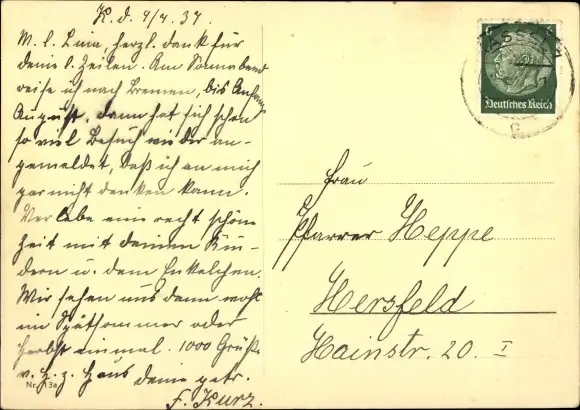 K. d. 4/7. 37.
M. l. Lina, herzl. dank für
deine l. Zeilen. Am Sonnabend
reise ich nach Bremen, bis Anfang
August. Dann hat sich schon
so viel Besuch wieder an-
gemeldet, daß ich an mich
gar nicht denken kann.
Verlebe eine recht schöne
Zeit mit deinen Kin-
dern u. dem Enkelchen.
Wir sehen uns dann wohl
im Spätsommer oder
Herbst einmal. 1000 Grüße
v. H. z. Haus deine getr.
F. Kurz.
Nr. 13a
Deutsches Reich
Frau
Pfarrer Heppe
Hersfeld
Hainstr. 20. I